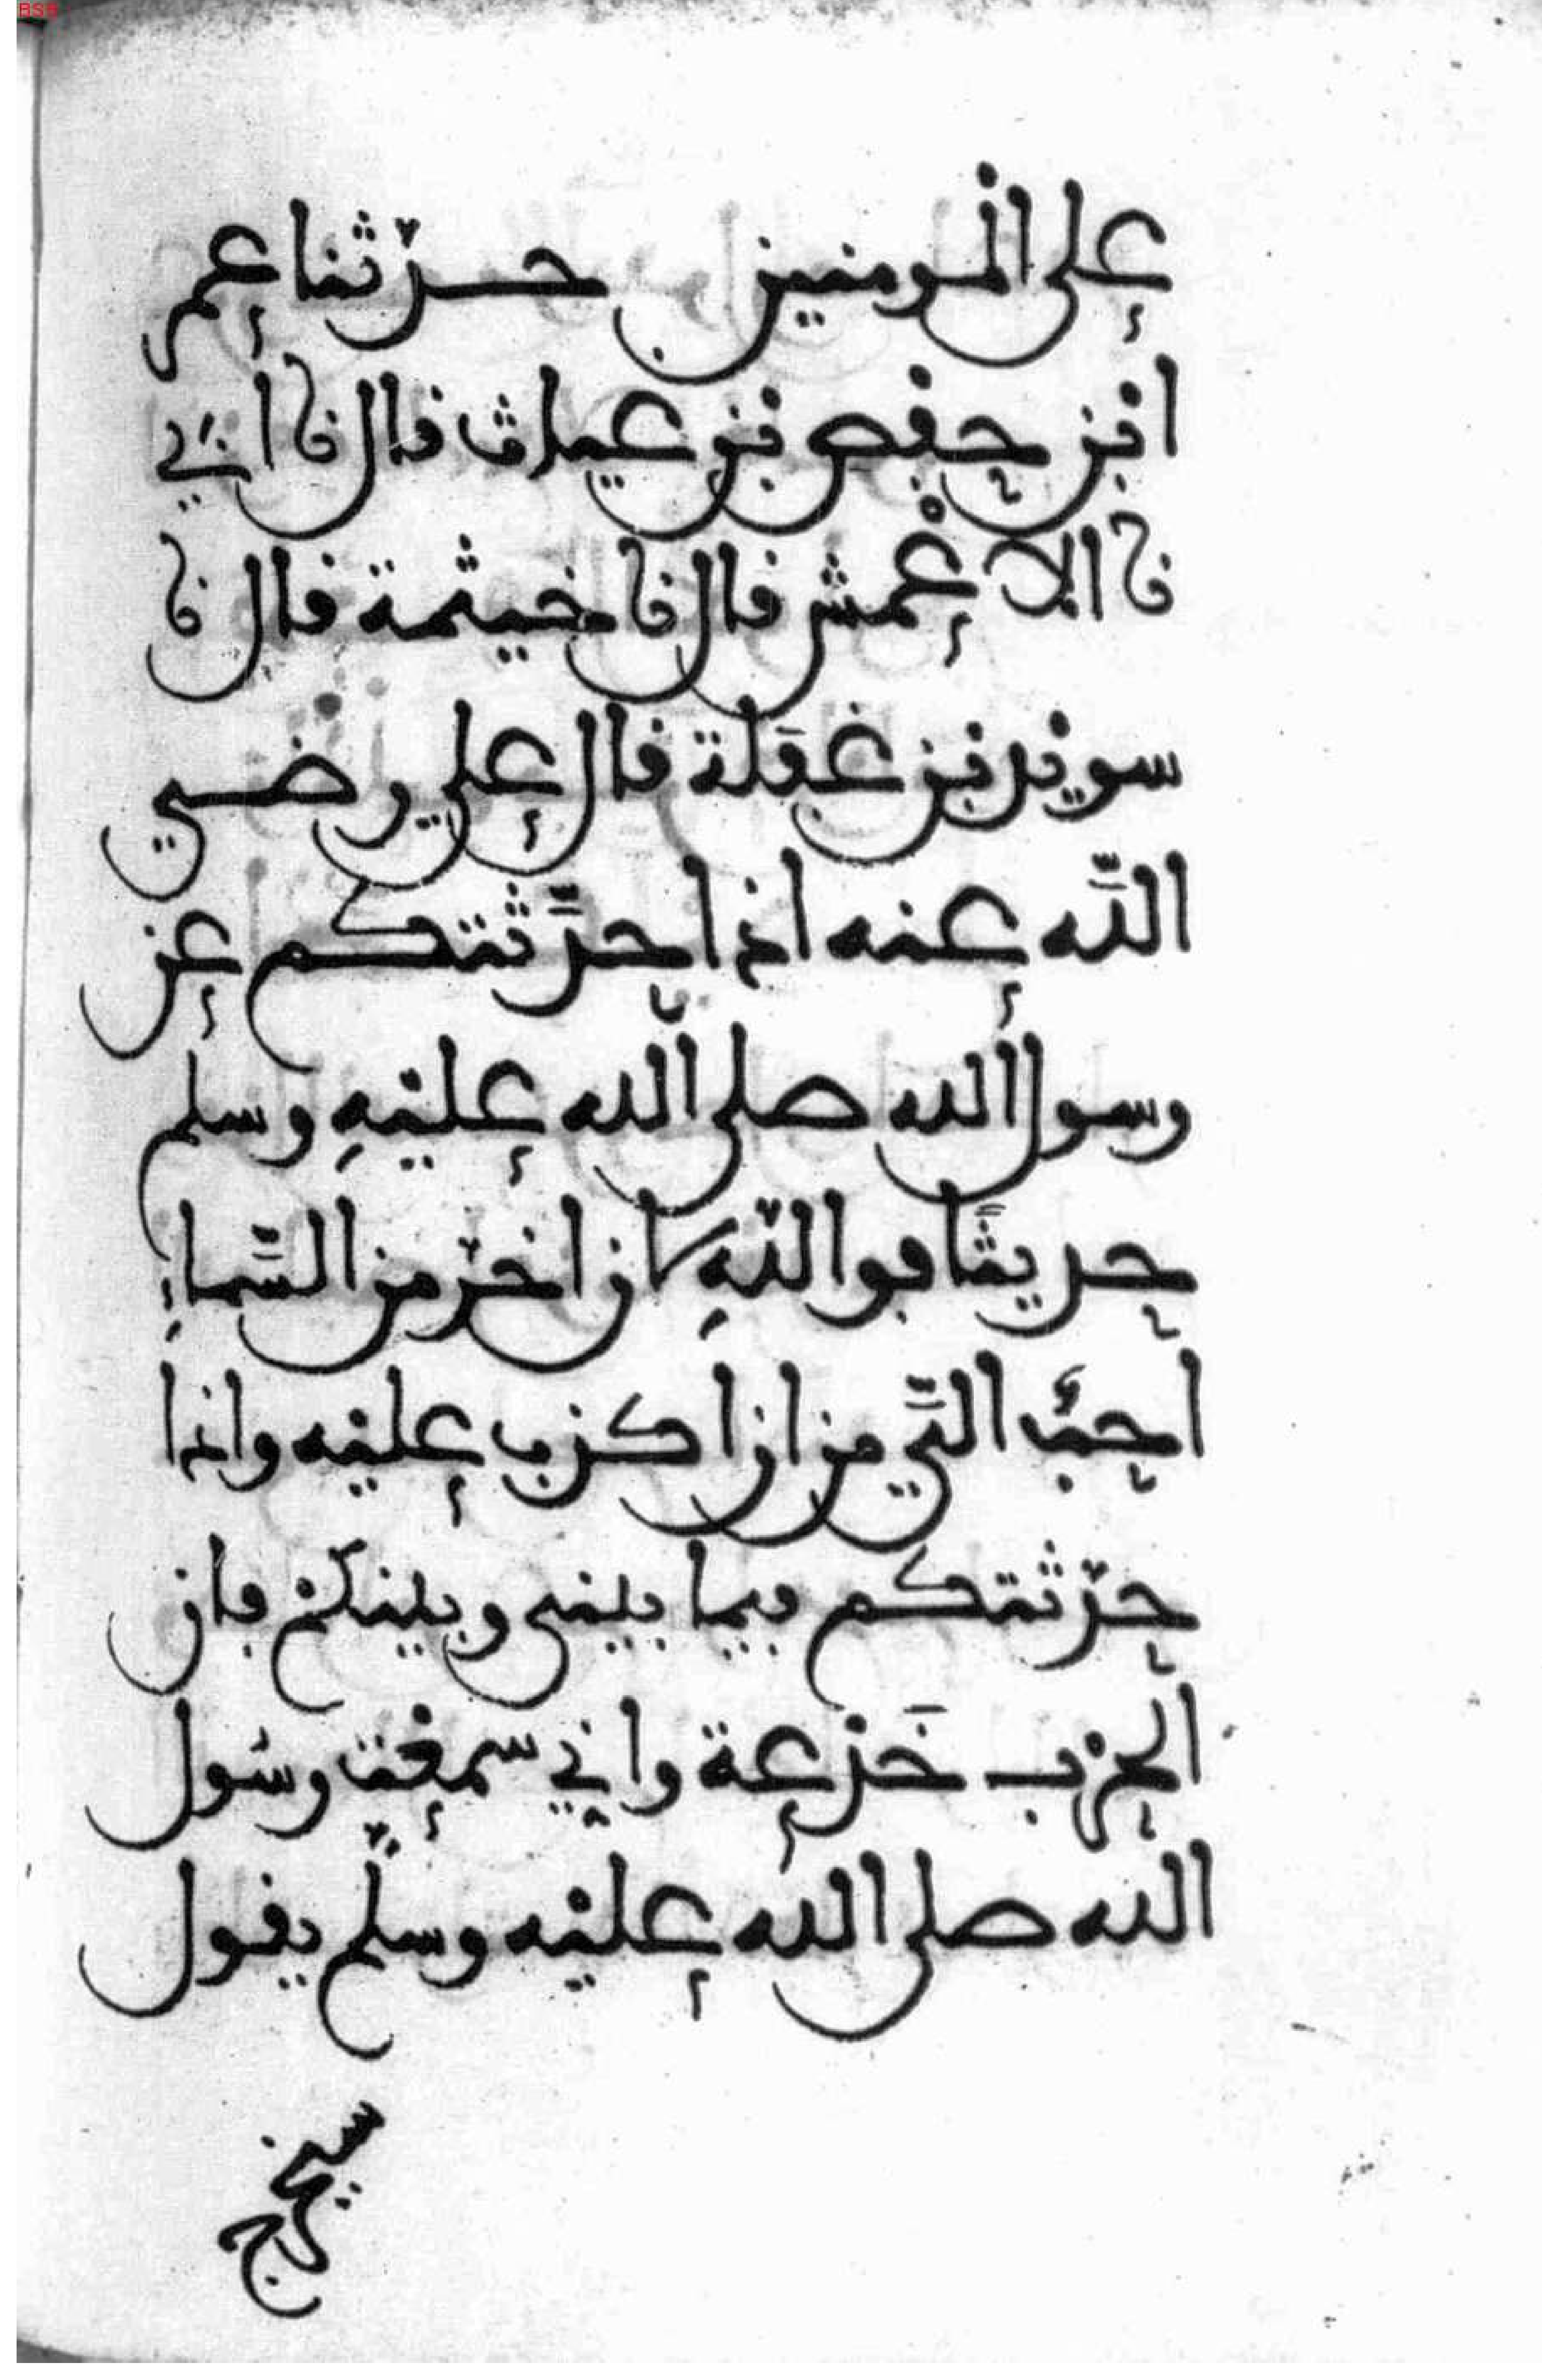 BSB
على المومنين حدّثنا عمر
ابن حفص بن غياث قال نا أبي
نا الاعْمش قال نا خيثمة قال نا
سويد بن غَفَلة قال علي رضي
اللَّه عنه اذا حدَّثتكم عن
رسول الله صلى الله عليْهِ وسلم
حديثًا فو اللّهِ لان اخرّ من السَّماءِ
احبُّ اليَّ من ان اكذب عليْه واذا
حدّثتكم فيما بيني وبينكمْ فان
الحرْب خَدْعة واني سمعْت رسول
الله صلى الله عليْه وسلّم يقول
سيخرج